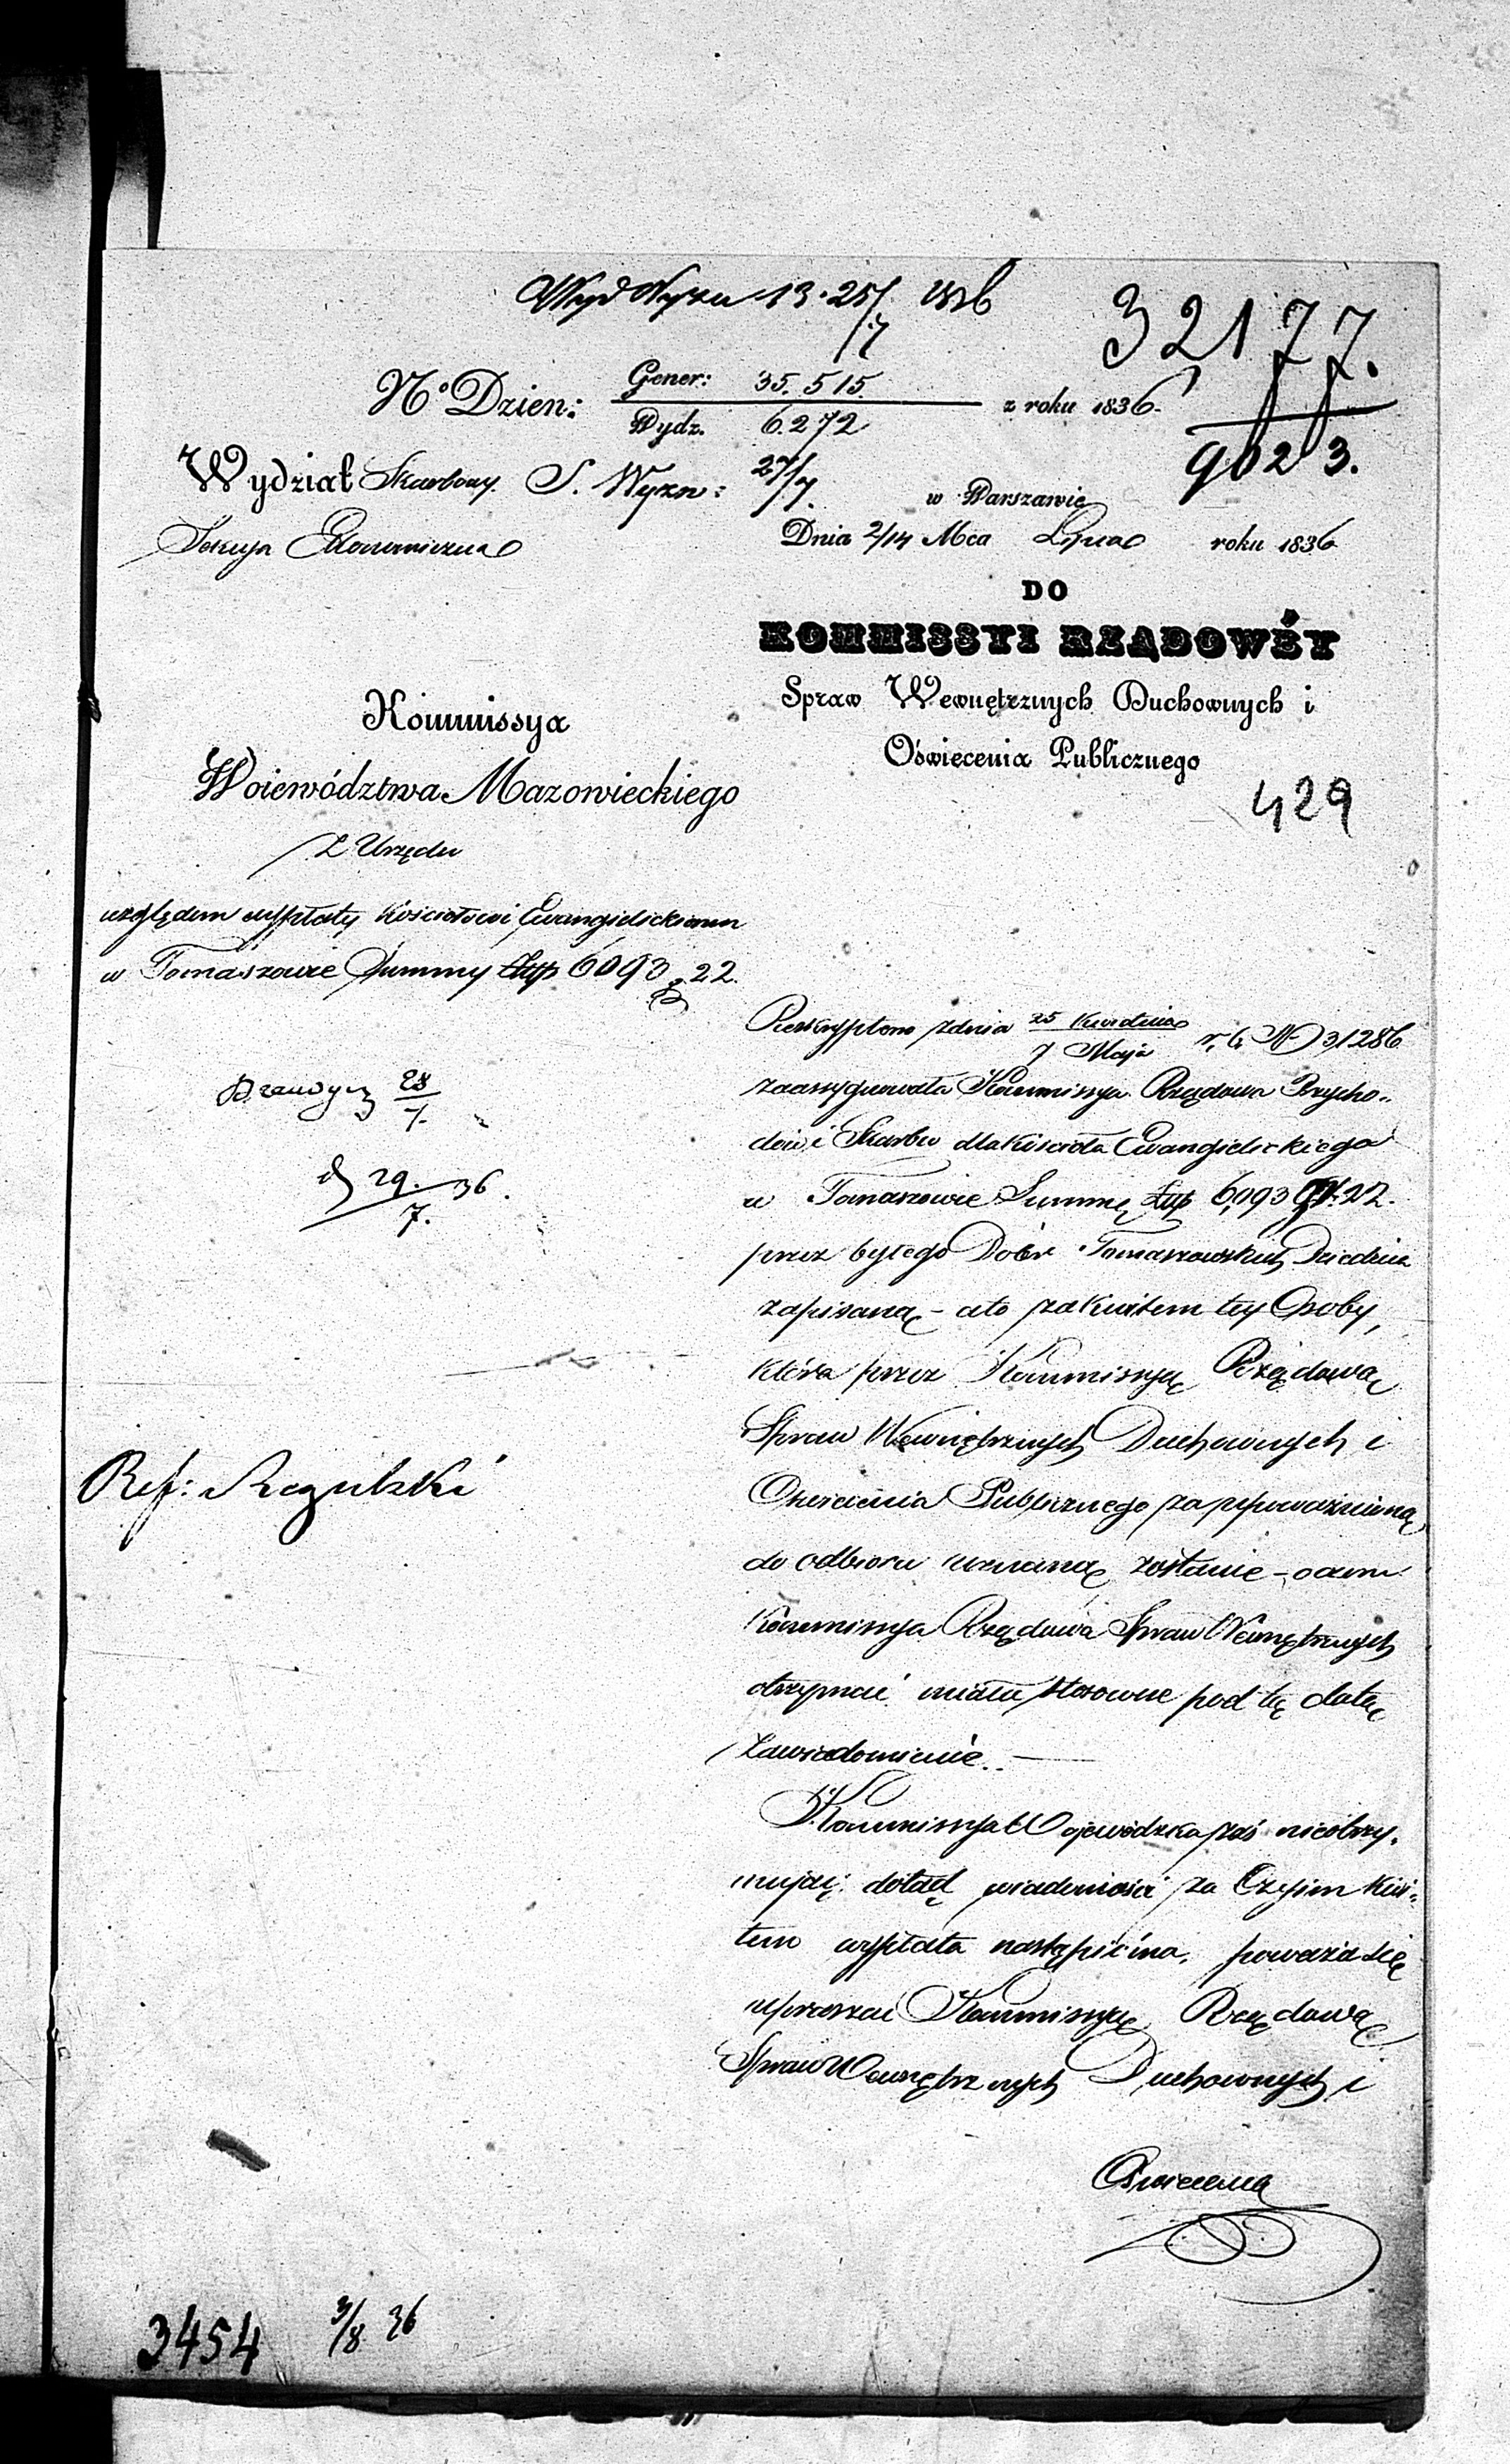 Wyd Wyzn 13.25/7 1836
32177.
9023.
No Dzien: Gener: 35.515.
Wydz. 6.272 z roku 1836.
Wydział Skarbowy. S. Wyzn: 27/7.
w Warszawie
Sekcya Ekonomiczna
Dnia 2/14 Mca Lipca roku 1836
DO
KOMMISSYI RZĄDOWÉY
Spraw Wewnętrznych Duchownych i
Oświecenia Publicznego
429
Kommissya
Woiewództwa Mazowieckiego
Z Urzędu
względem wypłaty Kościołowi Ewangielickiemu
w Tomaszowie Summy Złp 6093 g 22.
28/7.
29./7. 36.
Ref: Rzgulski
Reskryptem zdnia 25 Kwietnia/7 Maja r. b. N 31286
zaassygnowała Kommissya Rządowa Przycho-
dów i Skarbu dla Kościoła Ewangielickiego
w Tomaszowie Summę Złp 6,093 gr. 22.
przez byłego Dóbr Tomaszowskich Dziedzica
zapisaną – a to za kwitem tey Osoby,
która przez Kommissyę Rządową
Spraw Wewnętrznych Duchownych i
Oświecenia Publicznego za upoważnioną
do odbioru uznaną zostanie – o czem
Kommissya Rządowa Spraw Wewnętrznych
otrzymać miała stosowne pod tę datę
zawiadomienie. –
Kommissya Wojewódzka zaś nieotrzy-
mując dotąd wiadomości za Czyjim kwi-
tem wypłata nastąpić ma, poważa się
upraszać Kommissyę Rządową
Spraw Wewnętrznych Duchownych i
Oświecenia
3454 3/8 36